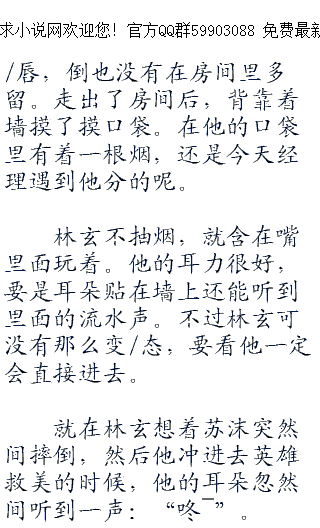 求小说网欢迎您！官方QQ群59903088 免费最新
/唇，倒也没有在房间里多
留。走出了房间后，背靠着
墙摸了摸口袋。在他的口袋
里有着一根烟，还是今天经
理遇到他分的呢。
林玄不抽烟，就含在嘴
里面玩着。他的耳力很好，
要是耳朵贴在墙上还能听到
里面的流水声。不过林玄可
没有那么变/态，要看他一定
会直接进去。
就在林玄想着苏沫突然
间摔倒，然后他冲进去英雄
救美的时候，他的耳朵忽然
间听到一声：“咚¯”。